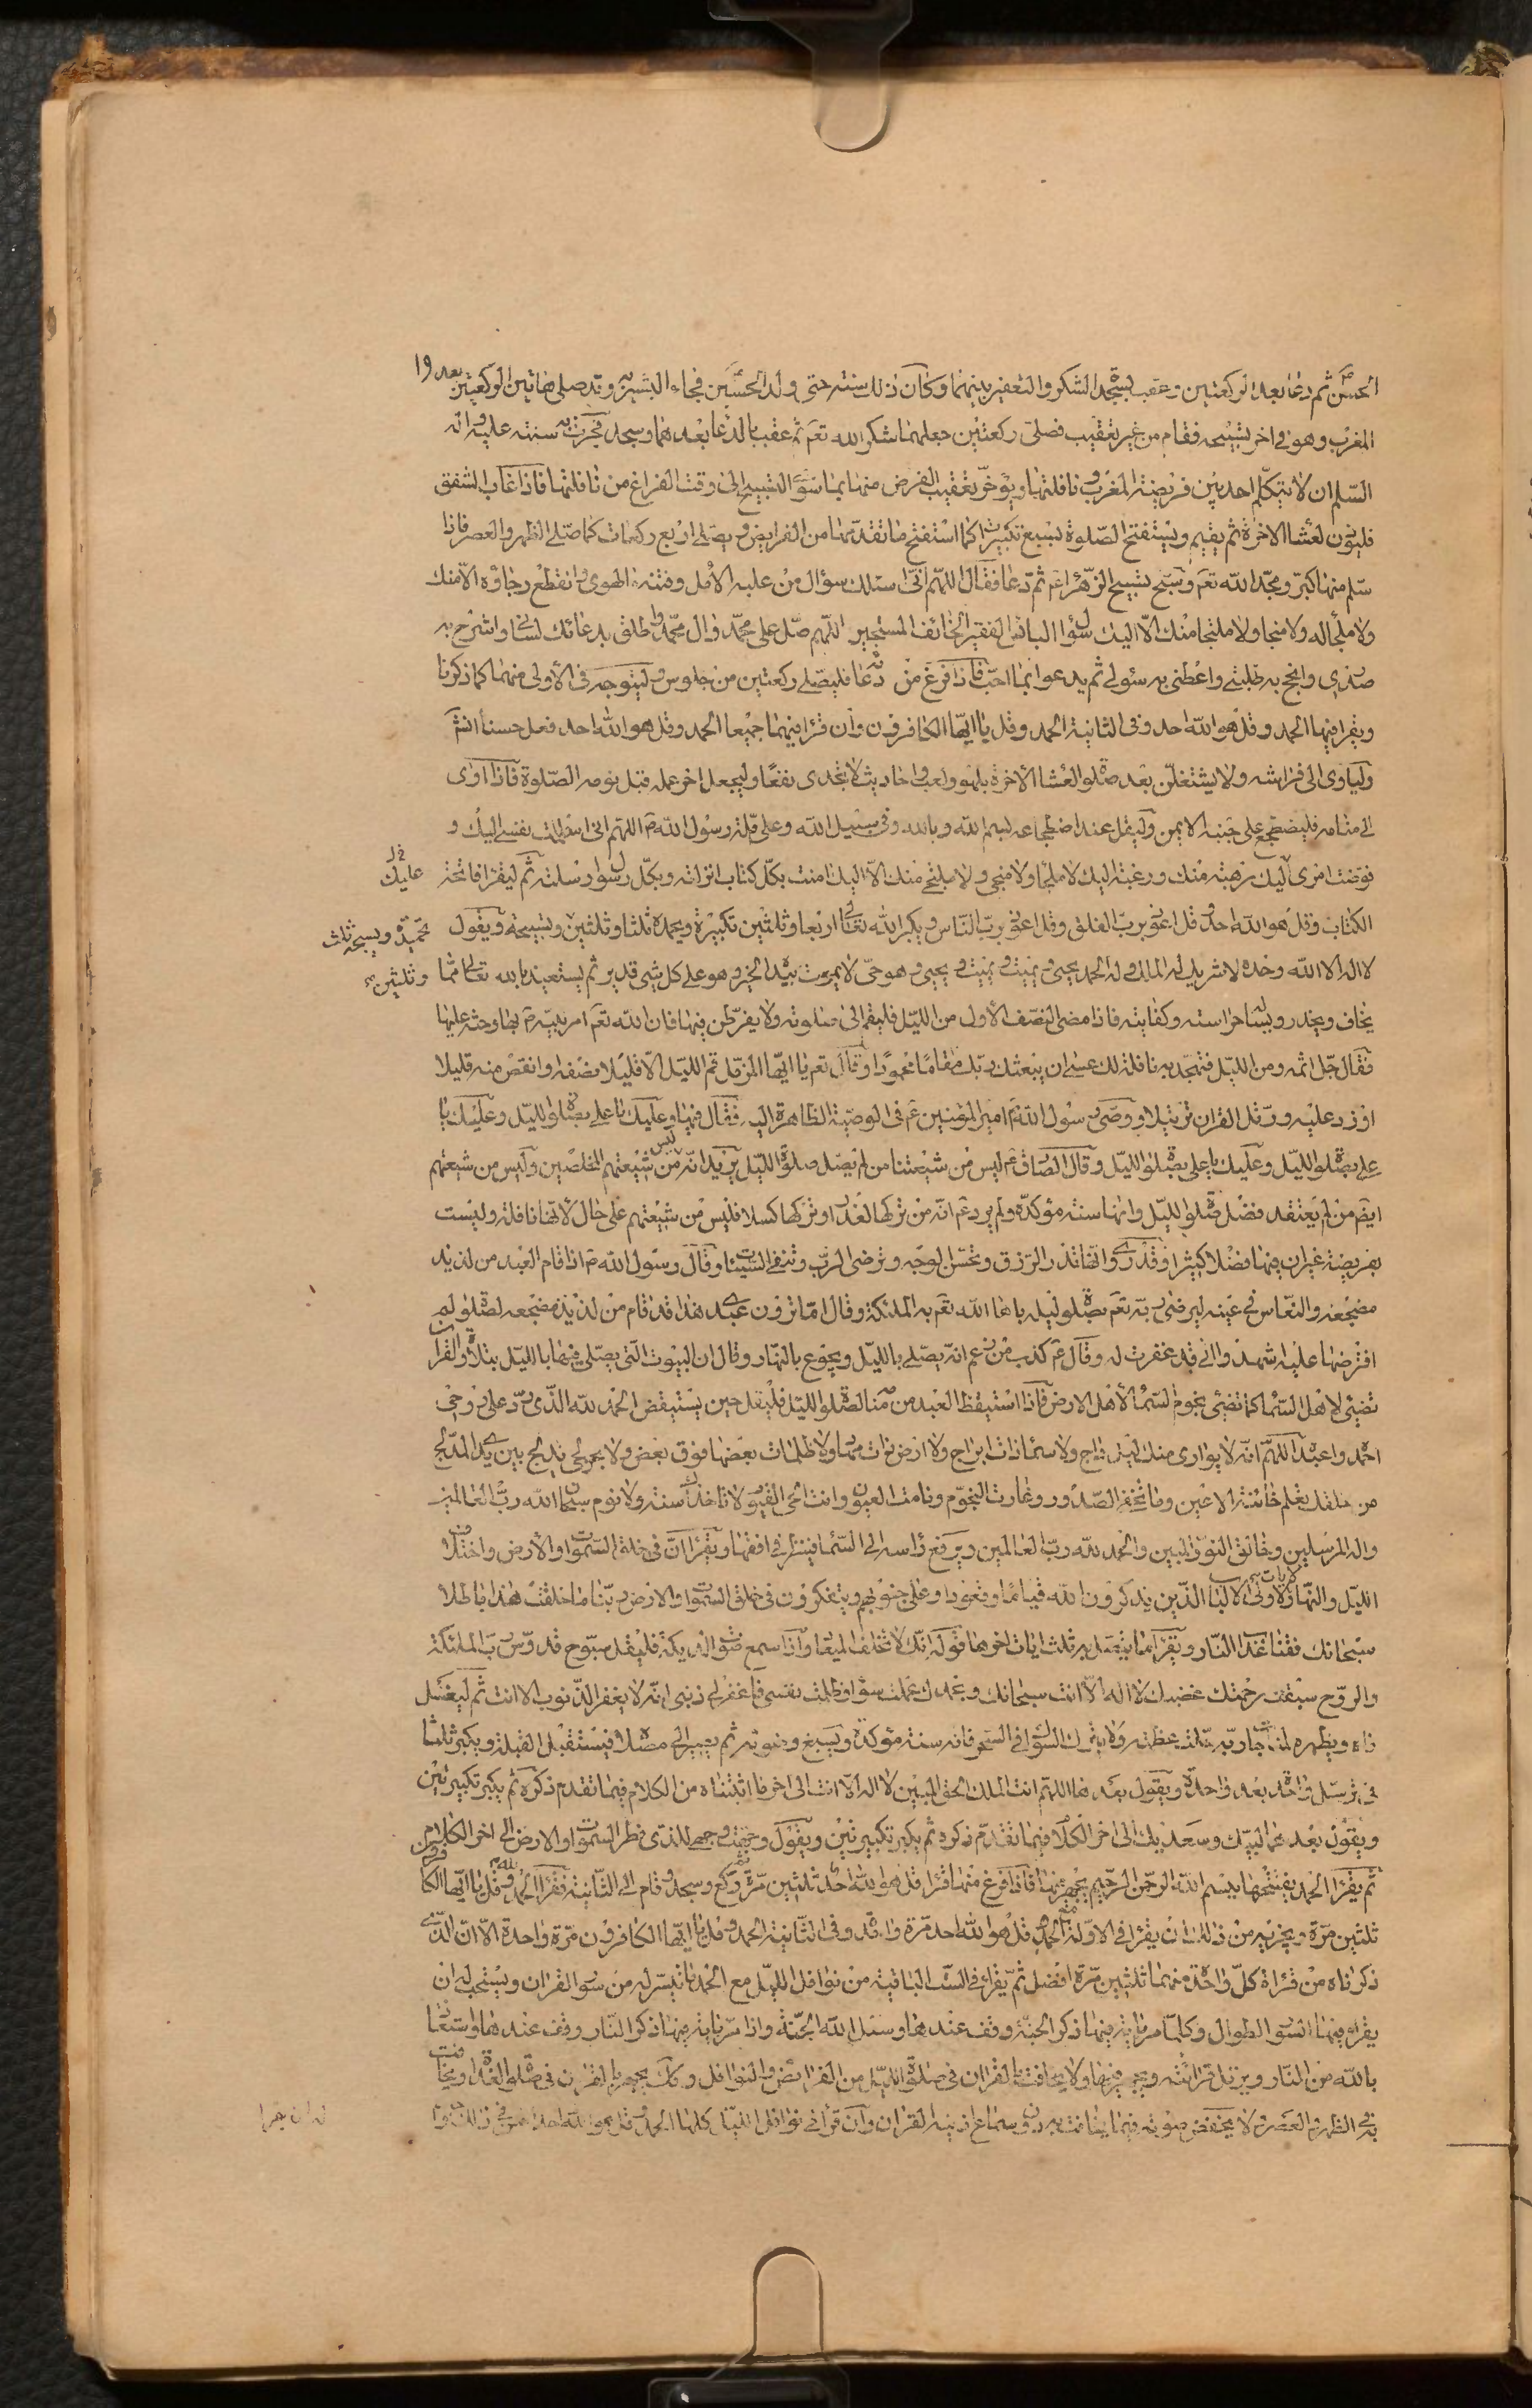 الحسن ثم دعا بعد الركعتين وعقب بسجدة الشكر والتعفير بينهما وكان ذلك سنته حتى ولد الحسين فجاءه البشير به وقد صلى هاتين الركعتين بعد ١٩
المغرب وهو في اخر تسبيحه فقام من غير تعقيب فصلى ركعتين جعلهما شكرا لله تعم ثم عقب بالدعا بعدهما وسجد فجرت به سنته عليه واله
السلم ان لا يتكلم احد بين فريضة المغرب ونافلتها ويؤخر تعقيب الفرض منها بما سوى التسبيح الى وقت الفراغ من نافلتها فاذا غاب الشفق
فليؤذن لعشا الاخرة ثم يقيم ويستفتح الصلوة بسبع تكبيرات كما استفتح ما تقدمها من الفرايض ويصلي اربع ركعات كما صلى الظهر والعصر فاذا
سلم منها كبر ومجد الله تعم وسبح تسبيح الزهراء ع ثم دعا فقال اللهم اني اسئلك سؤال من غلبه الامل وفتنه الهوى وانقطع رجاؤه الا منك
ولا ملجأ له ولا منجا ولا ملتجا منك الا اليك سؤال البائس الفقير الخائف المستجير اللهم صل على محمد وال محمد واطلق بدعائك لساني واشرح به
صدري وانجح به طلبتي واعطني به سؤلي ثم يدعو بما احب فاذا فرغ من دعائه فليصلي ركعتين من جلوس وليتوجه في الاولى منهما كما ذكرنا
ويقرا فيها الحمد وقل هو الله احد وفي الثانية الحمد وقل يا ايها الكافرون وان قرا فيهما جميعا الحمد وقل هو الله احد فعل حسنا انش
ولياوى الى فراشه ولا يشتغلن بعد صلوة العشا الاخرة بلهو ولعب واحاديث لا تجدى نفعا وليجعل اخر عمله قبل نومه الصلوة فاذا اوى
الى منامه فليضطجع على جنبه الايمن وليقل عند اضطجاعه بسم الله وبالله وفي سبيل الله وعلى ملة رسول الله ص اللهم اني اسلمت نفسي اليك و
فوضت امرى اليك رهبة منك ورغبة اليك لا ملجأ ولا منجى ولا ملتجى منك الا اليك امنت بكل كتاب انزلته وبكل رسول ارسلته ثم ليقرا فاتحة عليك
الكتاب وقل هو الله احد وقل اعوذ برب الفلق وقل اعوذ برب الناس ويكبر الله تعالى اربعا وثلثين تكبيرة ويحمده ثلثا وثلثين ويسبحه ويقول تحميدة ويسبحه ثلث
لا اله الا الله وحده لا شريك له الملك وله الحمد يحيى ويميت ويميت ويحيى وهو حي لا يموت بيده الخير وهو على كل شئ قدير ثم يستعيذ بالله تعالى مما وثلثين
يخاف ويحذر ويسأل حراسته وكفايته فاذا مضى النصف الاول من الليل فليقم الى صلوته ولا يفرطن فيها فان الله تعم امر نبيه ص بها وحثه عليها
فقال جل اسمه ومن الليل فتهجد به نافلة لك عسى ان يبعثك ربك مقاما محمودا وقال تعم يا ايها المزمل قم الليل الا قليلا نصفه او انقص منه قليلا
او زد عليه ورتل القران ترتيلا ووصى رسول الله ص امير المؤمنين ع في الوصية الظاهرة اليه فقال فيها وعليك يا علي بصلوة الليل وعليك يا
علي بصلوة الليل وعليك يا علي بصلوة الليل وقال الصادق ع ليس من شيعتنا من لم يصل صلوة الليل يريد انه ليس من شيعتهم المخلصين وليس من شيعتهم
ايضم من لم يعتقد فضل صلوة الليل وانها سنة مؤكدة ولم يرد ع انه من تركها لعذر او تركها كسلا فليس من شيعتهم على حال لانها نافلة وليست
بفريضة غير ان فيها فضلا كثيرا وقد روى انها تدر الرزق وتحسن الوجه وترضى الرب وتنفى السيئات وقال رسول الله ص اذا قام العبد من لذيذ
مضجعه والنعاس في عينه ليرضى ربه تعم بصلوة ليله باها الله تعم به الملئكة وقال اما ترون عبدى هذا قد قام من لذيذ مضجعه لصلوة لم
افترضها عليه اشهدوا اني قد غفرت له وقال ع كذب من زعم انه يصلى بالليل ويجوع بالنهار وقال ان البيوت التي يصلى فيها بالليل بتلاوة القران
تضئ لاهل السما كما تضئ نجوم السما لاهل الارض فاذا استيقظ العبد من منامه لصلوة الليل فليقل حين يستيقض الحمد لله الذى رد علي روحى
احمده واعبده اللهم انه لا يوارى منك ليل داج ولا سماء ذات ابراج ولا ارض ذات مهاد ولا ظلمات بعضها فوق بعض ولا بحر لجي تدلج بين يدى المدلج
من خلقك تعلم خائنة الاعين وما تخفي الصدور وغارت النجوم ونامت العيون وانت الحي القيوم لا تاخذك سنة ولا نوم سبحان الله رب العالمين
واله المرسلين وخالق النور المبين والحمد لله رب العالمين ويرفع راسه الى السما فينظر في افقها ويقرا ان في خلق السموات والارض واختلاف
الليل والنهار لايات لاولى الالباب الذين يذكرون الله قياما وقعودا وعلى جنوبهم ويتفكرون في خلق السموات والارض ربنا ما خلقت هذا باطلا
سبحانك فقنا عذاب النار ويقرا ما يتصل به ثلث ايات اخرها قوله انك لا تخلف الميعاد واذا سمع صوت الديكة فليقل سبوح قدوس رب الملئكة
والروح سبقت رحمتك غضبك لا اله الا انت سبحانك وبحمدك عملت سوء وظلمت نفسي فاغفر لي ذنبي انه لا يغفر الذنوب الا انت ثم ليغسل
فاه ويطهره لمناجاة ربه جلت عظمته ولا يترك السواك في السحر فانه سنة مؤكدة ويسبغ وضوئه ثم يصير الى مصلاه فيستقبل القبلة ويكبر ثلثا
في ترسل واحدة بعد واحدة ويقول بعدها اللهم انت الملك الحق المبين لا اله الا انت الى اخر ما اثبتناه من الكلام فيما تقدم ذكره ثم يكبر تكبيرتين
ويقول بعدهما لبيك وسعديك الى اخر الكلام فيما تقدم ذكره ثم يكبر تكبيرتين ويقول وجهت وجهي للذى فطر السموات والارض الى اخر الكلام
ثم يقرا الحمد يفتتحها ببسم الله الرحمن الرحيم يجهر بها فاذا فرغ منها قرا قل هو الله احد ثلثين مرة وركع وسجد وقام الى الثانية فقرا الحمد وقل يا ايها الكافرون
ثلثين مرة ويجزيه من ذلك ان يقرا في الاولة الحمد وقل هو الله احد مرة واحدة وفي الثانية الحمد وقل يا ايها الكافرون مرة واحدة الا ان الذى
ذكرناه من قراة كل واحدة منهما ثلثين مرة افضل ثم يقراء في الست الباقية من نوافل الليل مع الحمد ما تيسر له من سور القران ويستحب له ان
يقراء فيها السور الطوال وكلما مر باية فيها ذكر الجنة وقف عندها وسئل الله الجنة واذا مر باية فيها ذكر النار وقف عندها واستعاذ
بالله من النار ويرتل قرائته ويجهر فيها ولا يخافت بالقران في صلوة الليل من الفرائض والنوافل وكك يجهر بالقران في صلوة الغداة ويخافت
بقى الظهر والعصر ولا يخفض صوته فيما يخافت به دون سماع اذنيه القران وان قرا في نوافل الليل كلها الحمد وقل هو الله احد